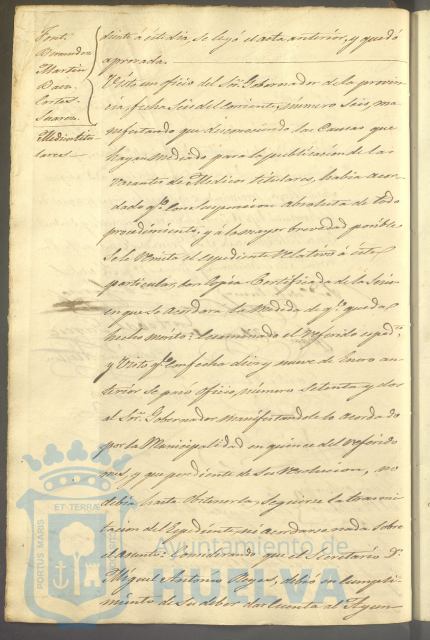 Font.
Bermudez
Martin
Daza
Cortes
Suarez
Medicos titu-
lares
diente á este dia, se leyó el acta anterior, y quedó
aprovada.
Vistо un oficio del Sor. Gobernador de la provin
cia fecha seis del corriente, número seis, ma
nifestando que desconociendo las causas que
hayan mediado para la publicacion de las
vacantes de Medicos titulares, habia acor
dado qe. con suspension absoluta de todo
procedimiento, y á la mayor brevedad posible
se le remita el espediente relativo á este
particular, con copia certificada de la sesion
en que se acordara la medida de qe. queda
hecho mérito: Examinado el referido espedte.
y visto qe. con fecha diez y nueve de Enero an
terior se pasó oficio, número setenta y dos
al Sor. Gobernador manifestandole lo acordado
por la Municipalidad en quince del referido
mes, y que pendiente de su resolucion, no
debia, hasta obtenerla, seguirse la tramita
cion del Espediente ni acordarse nada sobre
el asunto: Considerando que el Secretario D.
Miguel Antonio Reyes, debió en cumpli
miento de su deber dar cuenta al Ayun
PORTUS MARIS ET TERRAE
Ayuntamiento de
HUELVA